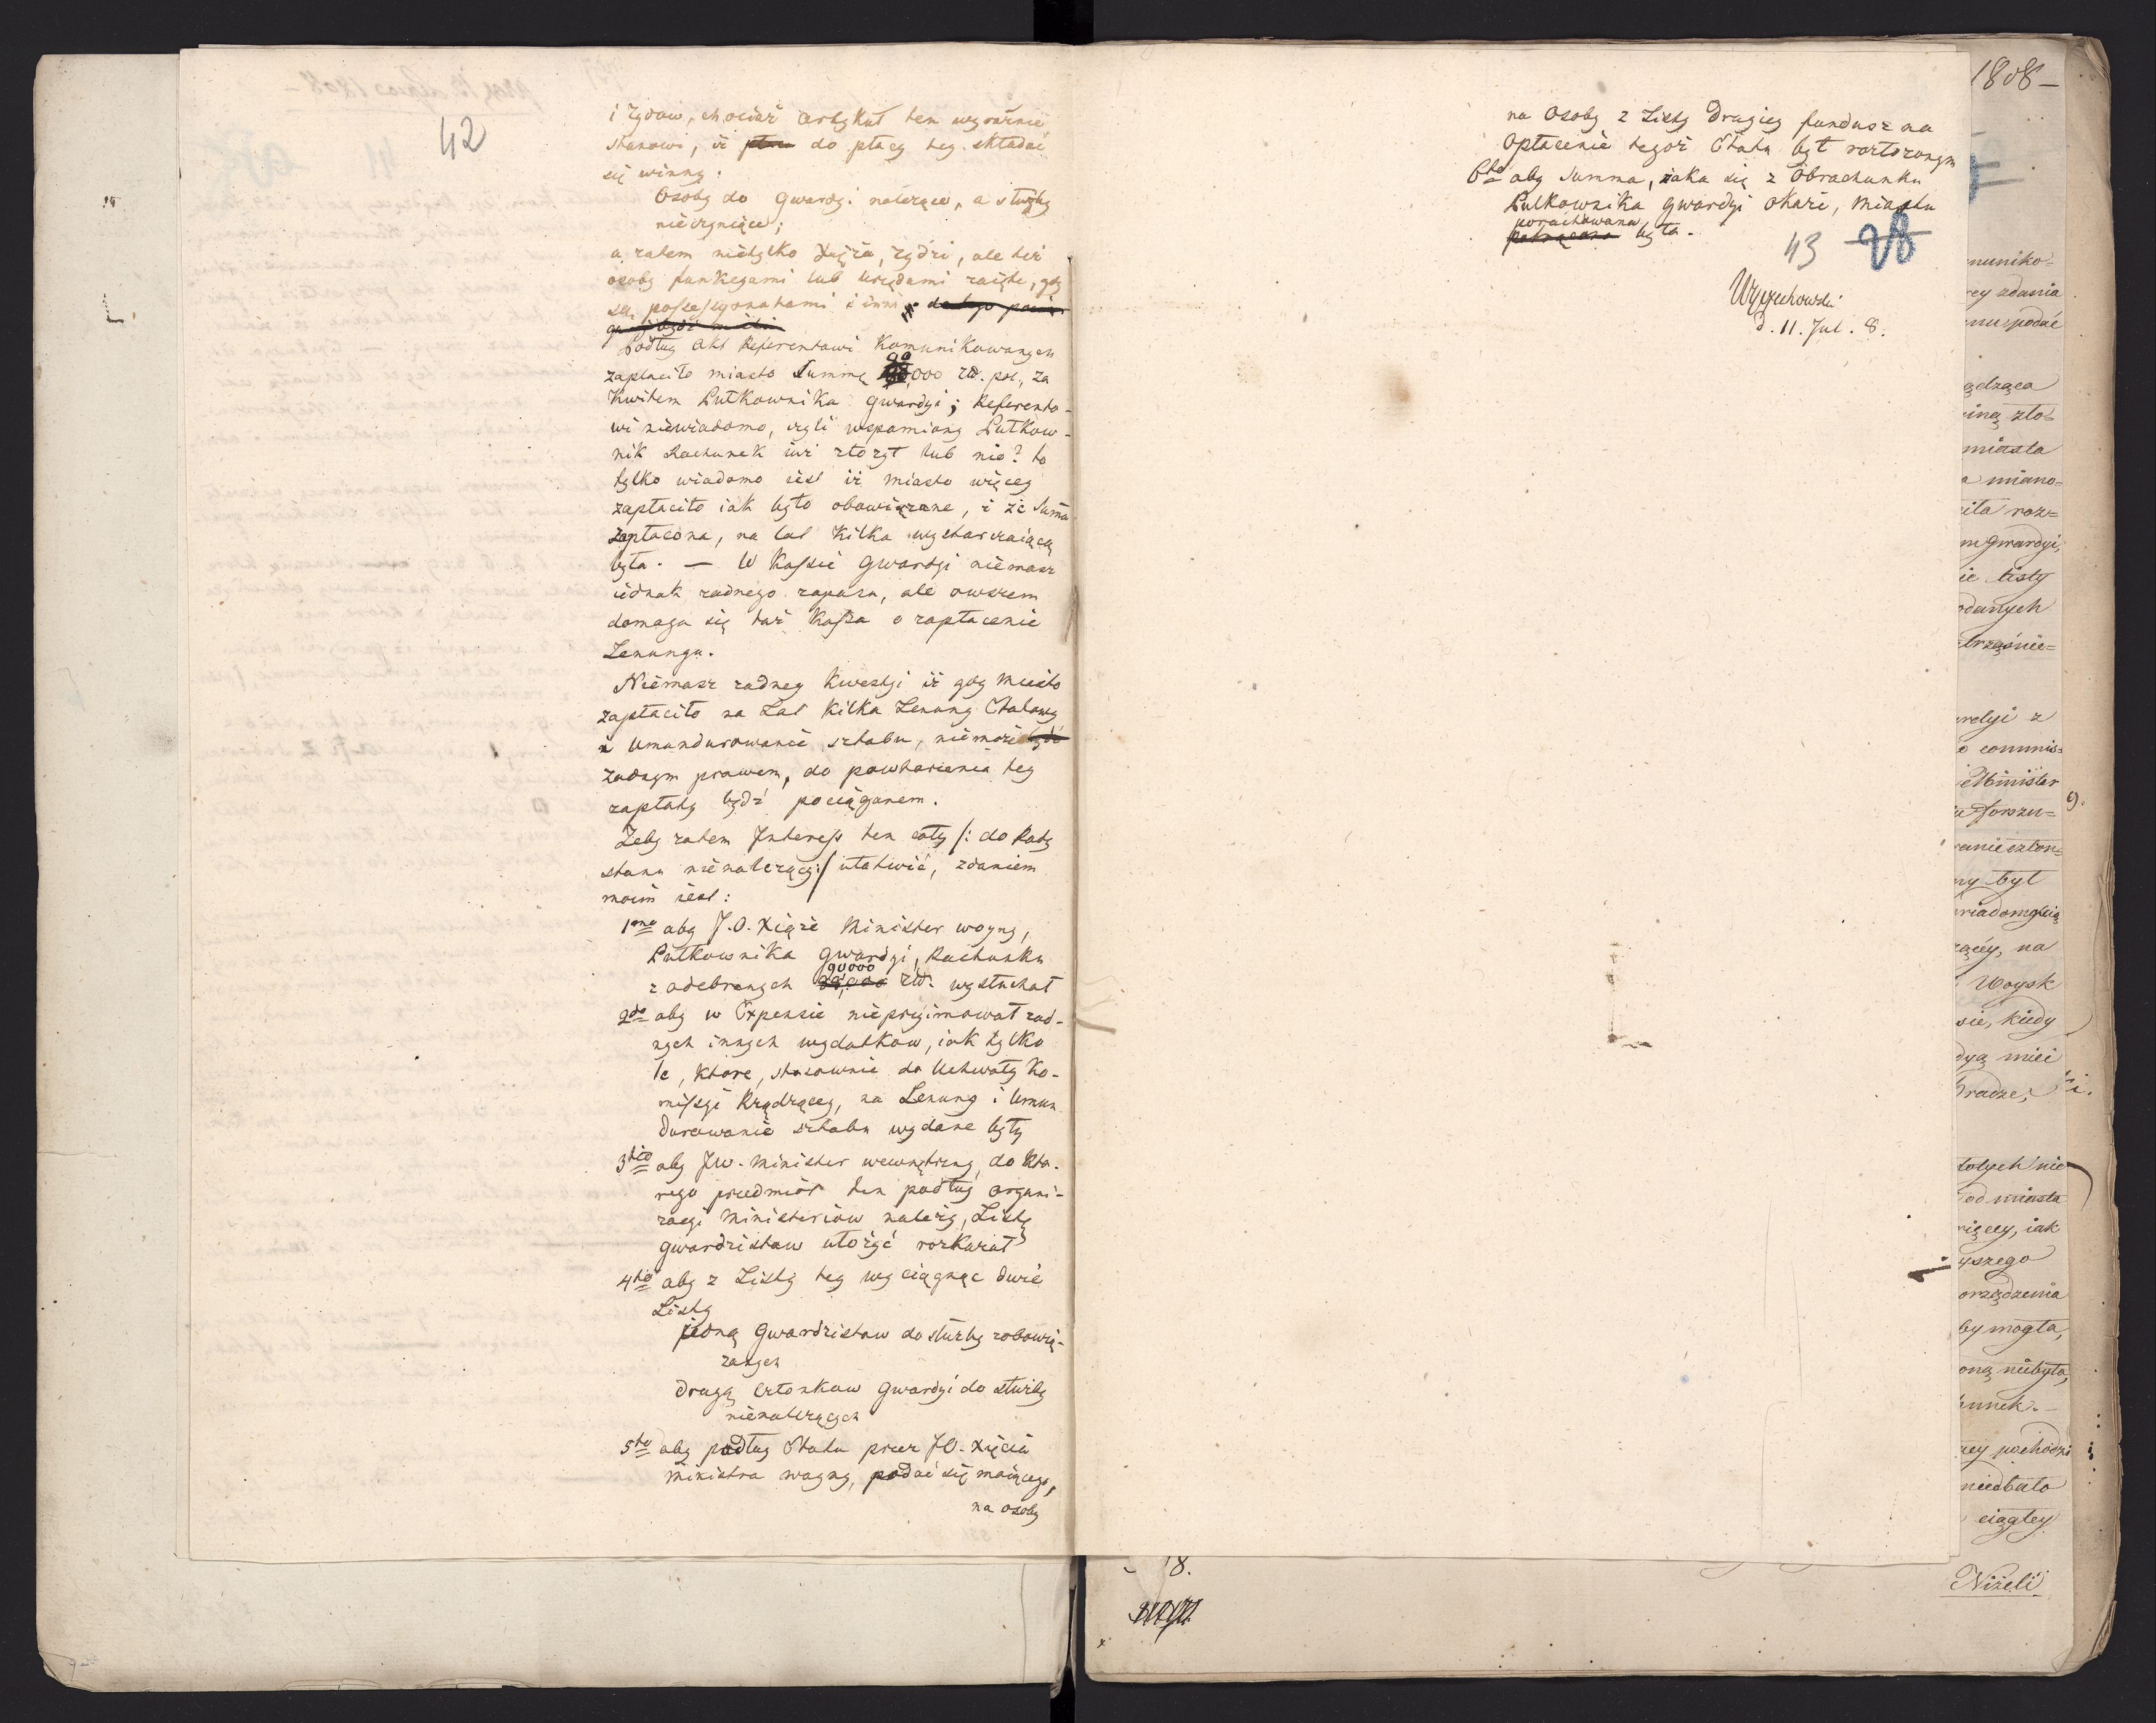 42
i Zydow, chociaż Artykuł ten wyraznie
stanowi, iż do płacy tey składać
się winny.
Osoby do Gwardyi należące, a służby
nieczyniące;
a zatem nietylko Xięża, Zydzi, ale też
osoby funkcyami lub Urzędami zaięte, gdy
są possessyonatami i inni
Podług Akt Referentowi Kommunikowanych
zapłaciło miasto Summę 90,000 zł. pol., za
Kwitem Pułkownika Gwardyi; Referento-
wi niewiadomo, czyli wspomiony Pułkow-
nik Rachunek iuż złożył lub nie? to
tylko wiadomo iest iż miasto więcey
zapłaciło iak było obowiązane, i że Suma
zapłacona, na lat kilka wystarczaiącą
była. — W Kassie Gwardyi niemasz
iednak żadnego zapasu, ale owszem
domaga się taż Kassa o zapłacenie
Lenungu.
Niemasz żadney kwestyi iż gdy miasto
zapłaciło na Lat kilka Lenung Etatowy
i Umundurowanie sztabu, niemoże
żadnym prawem, do powtorzenia tey
zapłaty bydź pociąganem.
Żeby zatem Interess ten cały /: do Rady
stanu nienależący :/ ułatwić, zdaniem
moim iest:
1mo aby J.O. Xiąże Minister woyny,
Pułkownika Gwardyi, Rachunku
90000
z odebranych zł. wysłuchał
2do aby w Expensie nieprzyimował żad-
nych innych wydatkow, iak tylko
te, ktore, stosownie do Uchwały Ko-
missyi Rządzącey, na Lenung i Umun
durowanie sztabu wydane były
3tio aby JW. Minister wewnętrzny, do kto-
rego przedmiot ten podług organi-
zacyi Ministeriow należy, Listę
gwardzistow ułożyć rozkazał
4to aby z Listy tey wyciągnąc dwie
Listy
iedną Gwardzistow do służby zobowią-
zanych
drugą Członkow Gwardyi do służby
nienależących
5to aby podług Etatu przez JO. Xięcia
Ministra woyny, podać się maiącego,
na osoby
na Osoby z Listy drugiey fundusz na
Opłacenie tegoż Etatu był rozłożonym
6to aby Summa, iaka się z Obrachunku
Pułkownika Gwardyi okaże, Miastu
porachowana
była.
43 28
Wyczechowski
d. 11. Jul. 8.
1808 —
muniko=
rey zdania
mu podać
ądząca
miasta
a miano=
m gwardyi,
ie listy
odanych
o commis=
ie Minister
ny był
ącéy, na
Woysk
sie, kiedy
dyą mieć
tolych nie
od miasta
ięcey, iak
yższego
orządzenia
by mogła,
oną niebyła,
unek. —
ney pochodzi
niedbało
ciągłey
Niżeli
8.